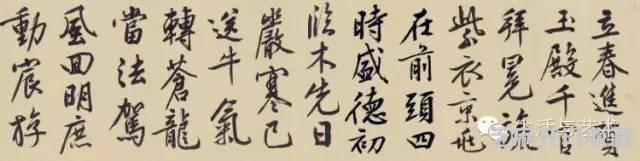 立春進賀
玉殿千官
拜冕旒
紫衣京兆
在前頭四
時盛德初
臨木先日
嚴寒已
送牛氣
轉蒼龍
當法駕
風回明庶
動宸游
生活与艺术